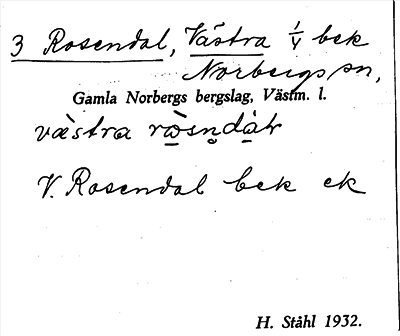 3 Rosendal, Västra 1/4 bek
Norbergs sn,
Gamla Norbergs bergslag, Västm. l.
västra
V. Rosendal bek ek
H. Ståhl 1932.